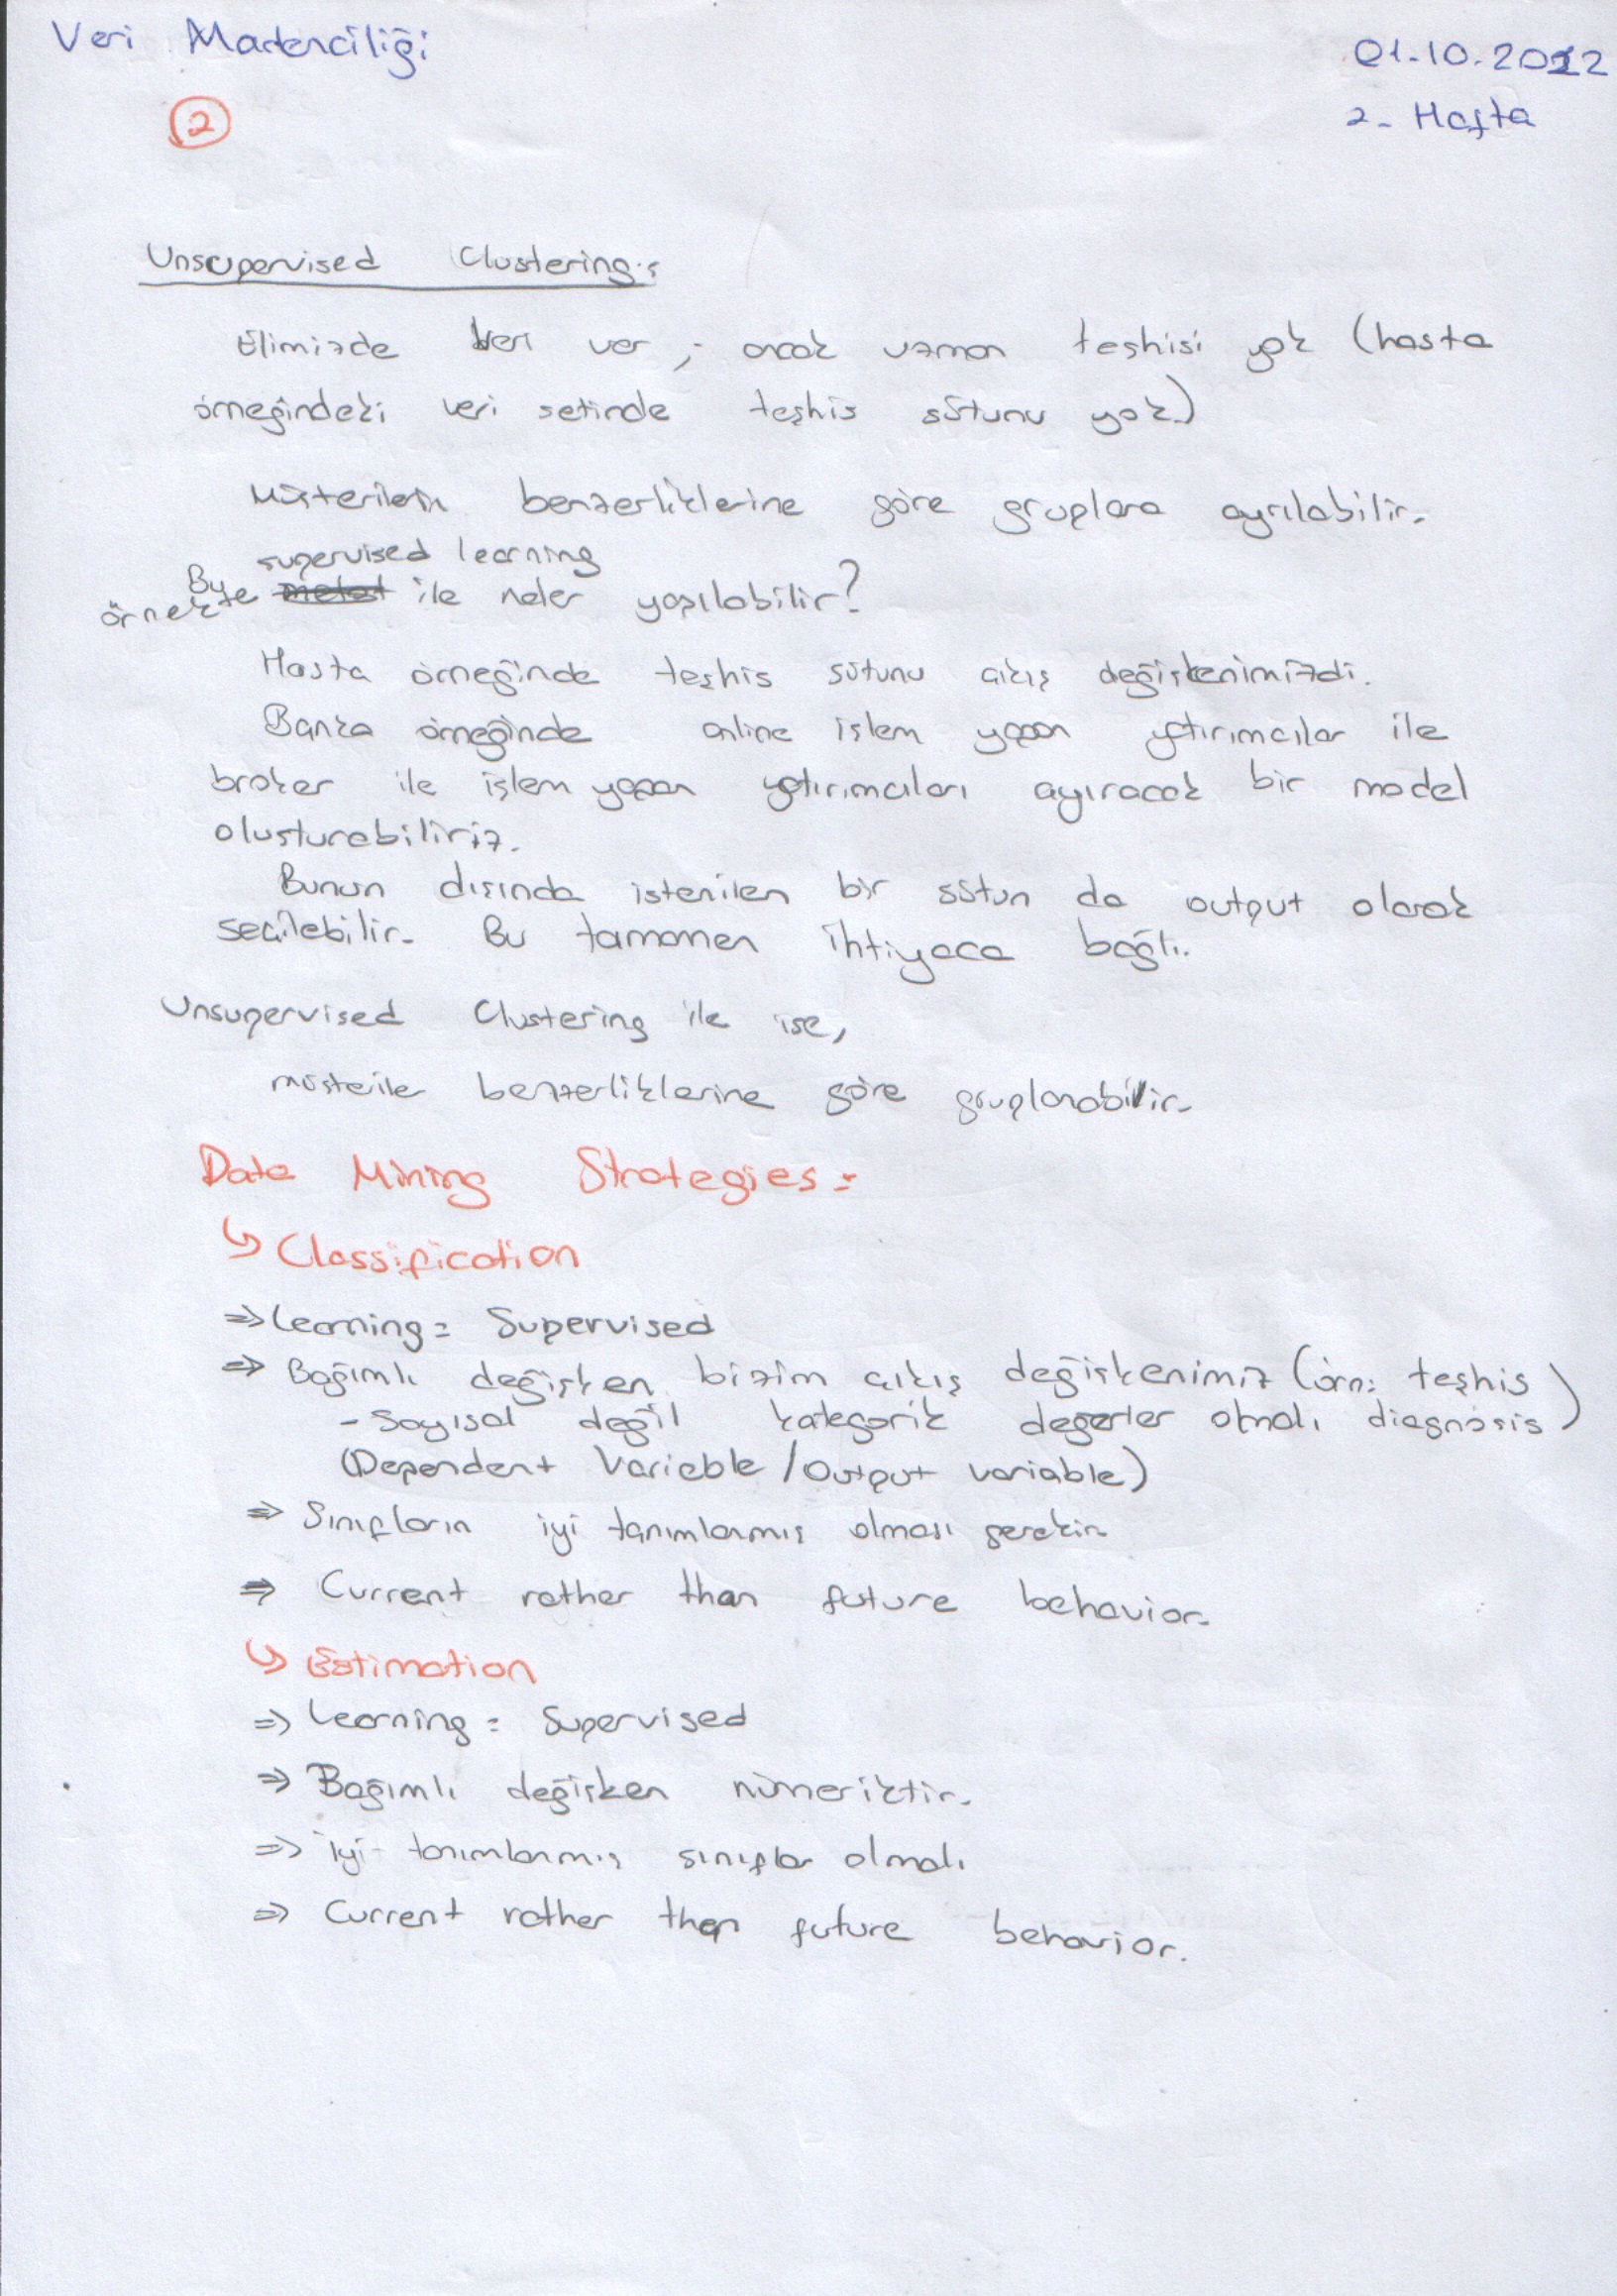 Veri Madenciliği
01.10.2012
2
2. Hafta
Unsupervised Clustering:
Elimizde veri var, ancak uzman teşhisi yok (hasta
örneğindeki veri setinde teşhis sütunu yok.)
Müşterilerin benzerliklerine göre gruplara ayrılabilir.
supervised learning
Bu örnekte metot ile neler yapılabilir?
Hasta örneğinde teşhis sütunu çıkış değişkenimizdi.
Banka örneğinde online işlem yapan yatırımcılar ile
broker ile işlem yapan yatırımcıları ayıracak bir model
oluşturabiliriz.
Bunun dışında istenilen bir sütun da output olarak
seçilebilir. Bu tamamen ihtiyaca bağlı.
Unsupervised Clustering ile ise,
müşteriler benzerliklerine göre gruplanabilir.
Data Mining Strategies:
↳ Classification
⇒ Learning = Supervised
⇒ Bağımlı değişken bizim çıkış değişkenimiz (örn: teşhis
- Sayısal değil kategorik değerler olmalı diagnosis)
(Dependent Variable / Output variable)
⇒ Sınıfların iyi tanımlanmış olması gerekir.
⇒ Current rather than future behavior.
↳ Estimation
⇒ Learning = Supervised
⇒ Bağımlı değişken nümeriktir.
⇒ İyi tanımlanmış sınıflar olmalı
⇒ Current rather than future behavior.